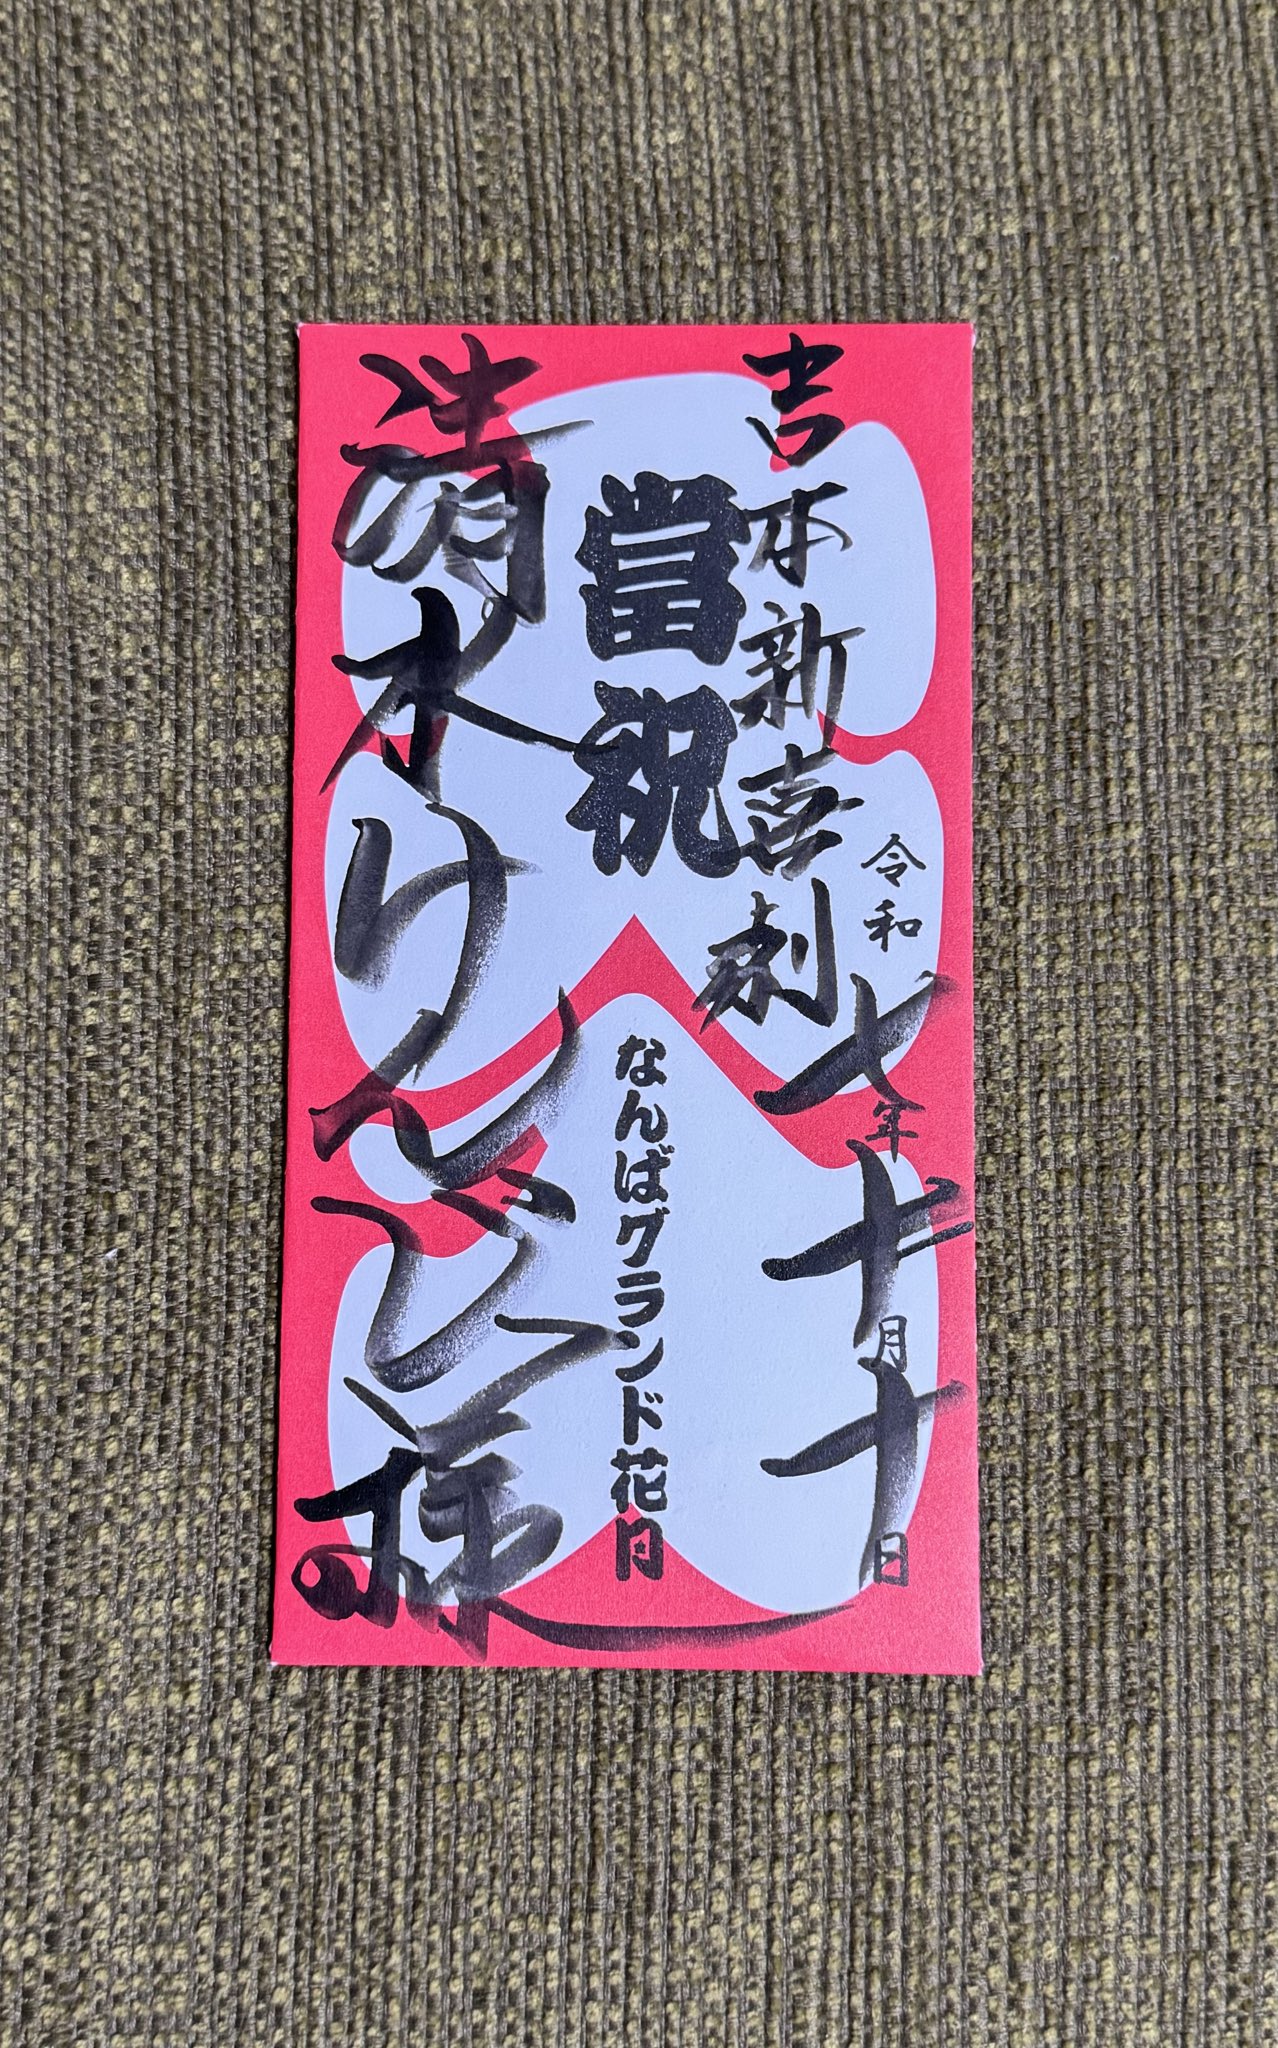 令和七年十月十日
吉本新喜劇
當祝
なんばグランド花月
清水けんじ様